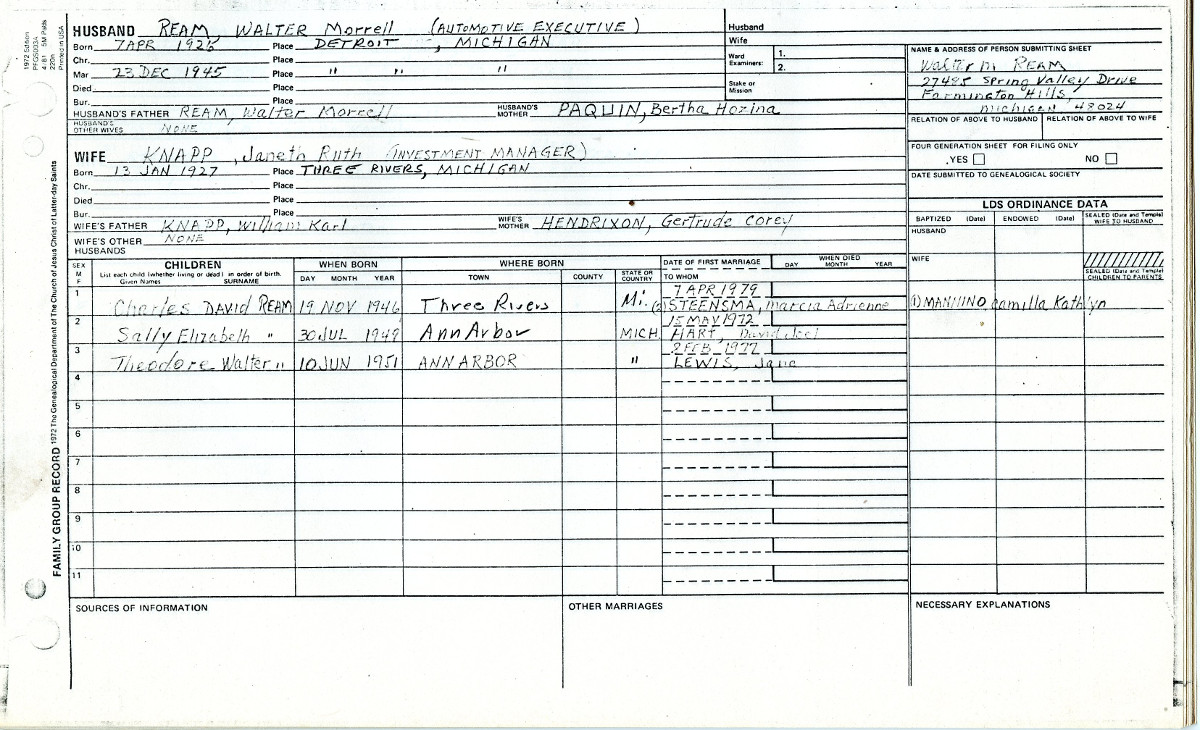 HUSBAND REAM, WALTER Morrell (AUTOMOTIVE EXECUTIVE)
Born 7 APR 1926 Place DETROIT, MICHIGAN
Chr. Place
Mar 23 DEC 1945 Place " " "
Died Place
Bur. Place
HUSBAND'S FATHER REAM, Walter Morrell HUSBAND'S MOTHER PAQUIN, Bertha Hozina
HUSBAND'S OTHER WIVES NONE
WIFE KNAPP, Janeth Ruth (INVESTMENT MANAGER)
Born 13 JAN 1927 Place THREE RIVERS, MICHIGAN
Chr. Place
Died Place
Bur. Place
WIFE'S FATHER KNAPP, William Karl WIFE'S MOTHER HENDRIXON, Gertrude Corey
WIFE'S OTHER HUSBANDS NONE
Husband
Wife
Ward Examiners: 1.
2.
Stake or Mission
NAME & ADDRESS OF PERSON SUBMITTING SHEET
Walter M REAM
27485 Spring Valley Drive
Farmington Hills,
Michigan 48024
RELATION OF ABOVE TO HUSBAND RELATION OF ABOVE TO WIFE
FOUR GENERATION SHEET FOR FILING ONLY
YES NO
DATE SUBMITTED TO GENEALOGICAL SOCIETY
LDS ORDINANCE DATA
BAPTIZED (Date) ENDOWED (Date) SEALED (Date and Temple) WIFE TO HUSBAND
HUSBAND
WIFE
SEALED (Date and Temple) CHILDREN TO PARENTS
SEX M F CHILDREN WHEN BORN WHERE BORN DATE OF FIRST MARRIAGE WHEN DIED
List each child (whether living or dead) in order of birth. Given Names SURNAME DAY MONTH YEAR TOWN COUNTY STATE OR COUNTRY TO WHOM DAY MONTH YEAR
1 7 APR 1979
Charles DAVID REAM 19 NOV 1946 Three Rivers Mi. (2) STEENSMA, Marcia Adrienne (1) MANNINO, Camilla Kathlyn
2 15 MAY 1972
Sally Elizabeth " 30 JUL 1949 Ann Arbor MICH HART, David Joel
3 2 FEB 1977
Theodore Walter " 10 JUN 1951 ANN ARBOR " LEWIS, Jane
4
5
6
7
8
9
10
11
SOURCES OF INFORMATION OTHER MARRIAGES NECESSARY EXPLANATIONS
FAMILY GROUP RECORD 1972 The Genealogical Department of The Church of Jesus Christ of Latter-day Saints
1972 Edition
PFGS033A
4/81 5M Pads
220n
Printed in USA